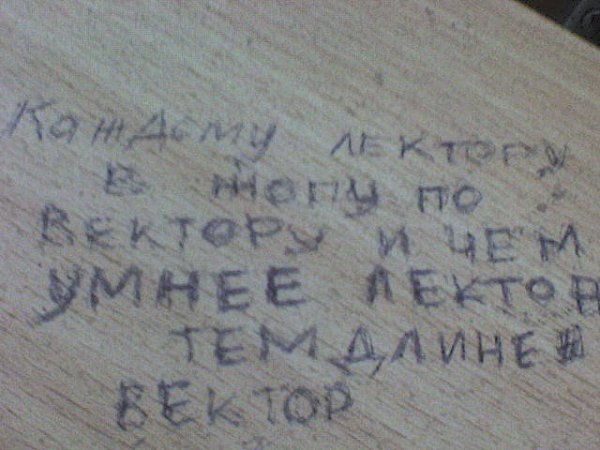 Каждому лектору
в жопу по
вектору и чем
умнее лектор
тем длинее
вектор